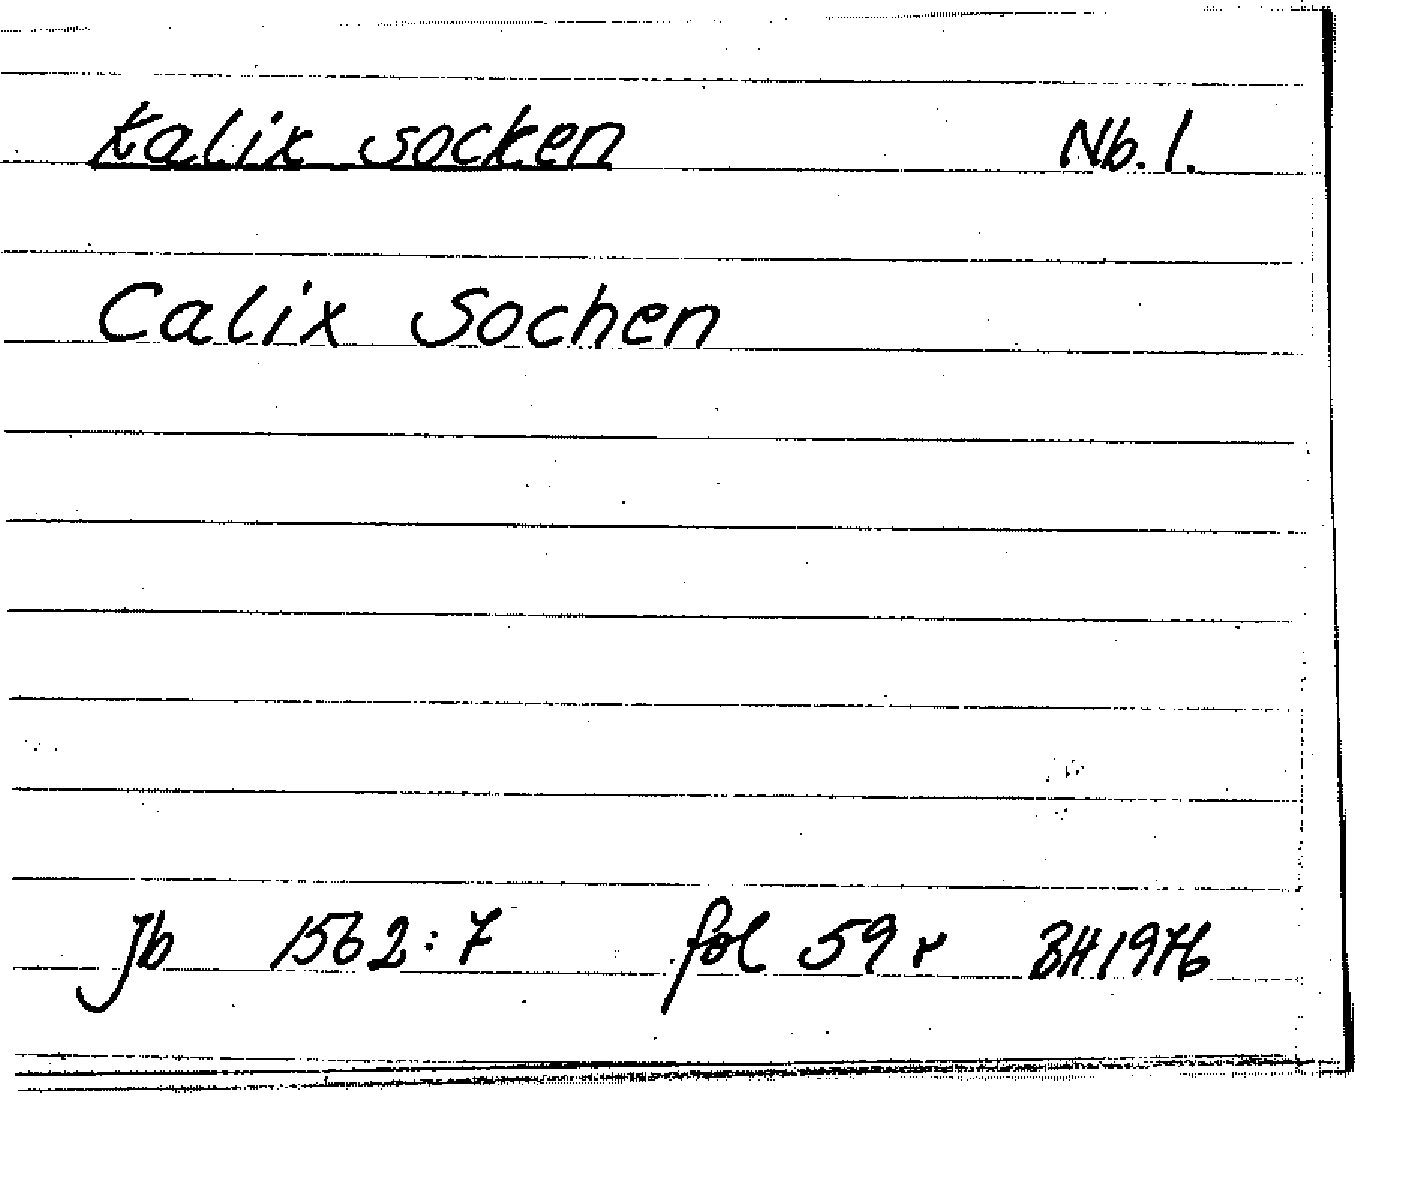 Kalix socken Nb. l.
Calix Sochen
Jb 1562:7 fol 59 r BH 1976